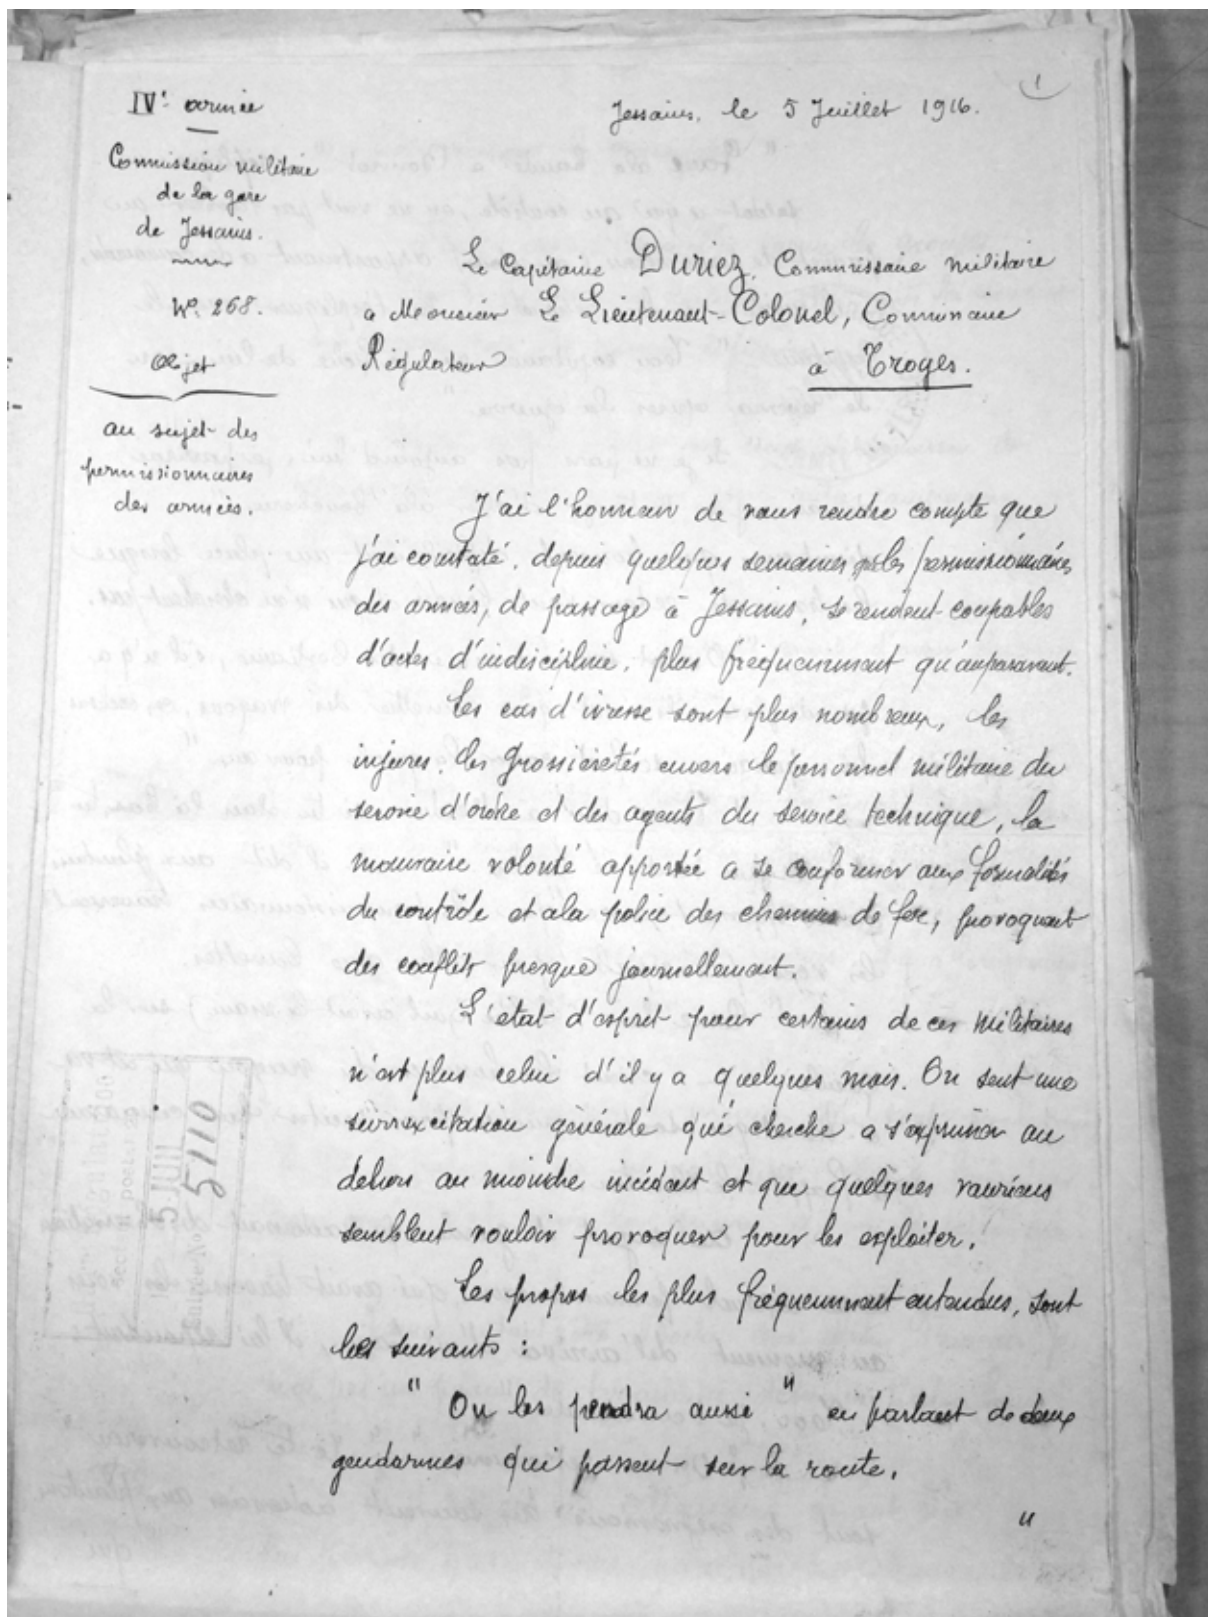 1
IVe armée
Jessains, le 5 Juillet 1916.
Commission militaire
de la gare
de Jessains.
Le Capitaine Duriez, Commissaire militaire
No 268.
a Monsieur Le Lieutenant-Colonel, Commissaire
Objet
Régulateur
à Troyes.
au sujet des
permissionnaires
des armées.
J'ai l'honneur de vous rendre compte que
j'ai constaté, depuis quelques semaines, que les permissionnaires
des armées, de passage à Jessains, se rendent coupables
d'actes d'indiscipline, plus fréquemment qu'auparavant.
Les cas d'ivresse sont plus nombreux, les
injures, les grossièretés envers le personnel militaire du
service d'ordre et des agents du service technique, la
mauvaise volonté apportée a se conformer aux formalités
du contrôle et a la police des chemins de fer, provoquent
des conflits presque journellement.
L'état d'esprit pour certains de ces militaires
n'est plus celui d'il y a quelques mois. On sent une
surrexcitation générale qui cherche a s'exprimer au
dehors au moindre incident et que quelques vauriens
semblent vouloir provoquer pour les exploiter.
Les propos les plus fréquemment entendus, sont
les suivants :
" On les pendra aussi " en parlant de deux
gendarmes qui passent sur la route.
"
5 JUIL
5110